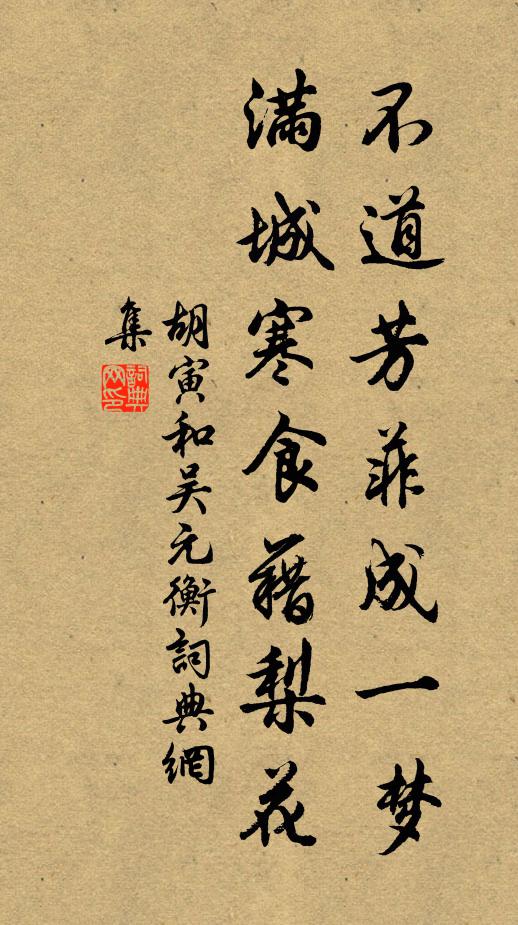 不道芳菲成一梦
满城寒食藉梨花
胡寅和吴元衡詞典網
集
詞典网印